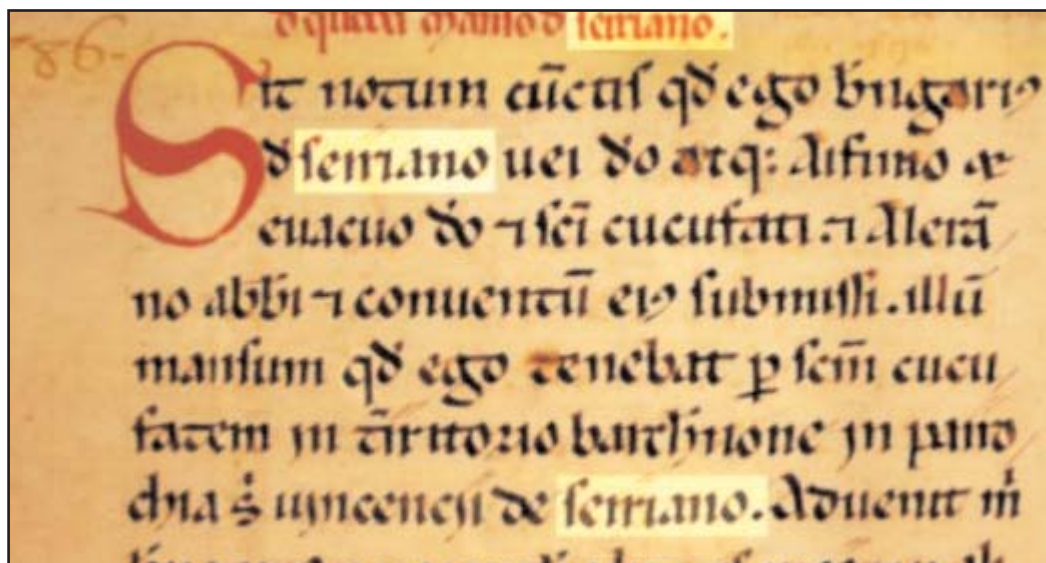 de serriano.
86-
Sit notum cūctis qd ego b'ngari9
d serriano
euacuo do ⁊ sci cucufati ⁊ Alerā
no abbi ⁊ conuentū ei9 submissi. illū
mansum qd ego tenebat p scm cucu
fatem in t'ritorio barch'none in parro
chia s uincencii de serriano. Aduenit m